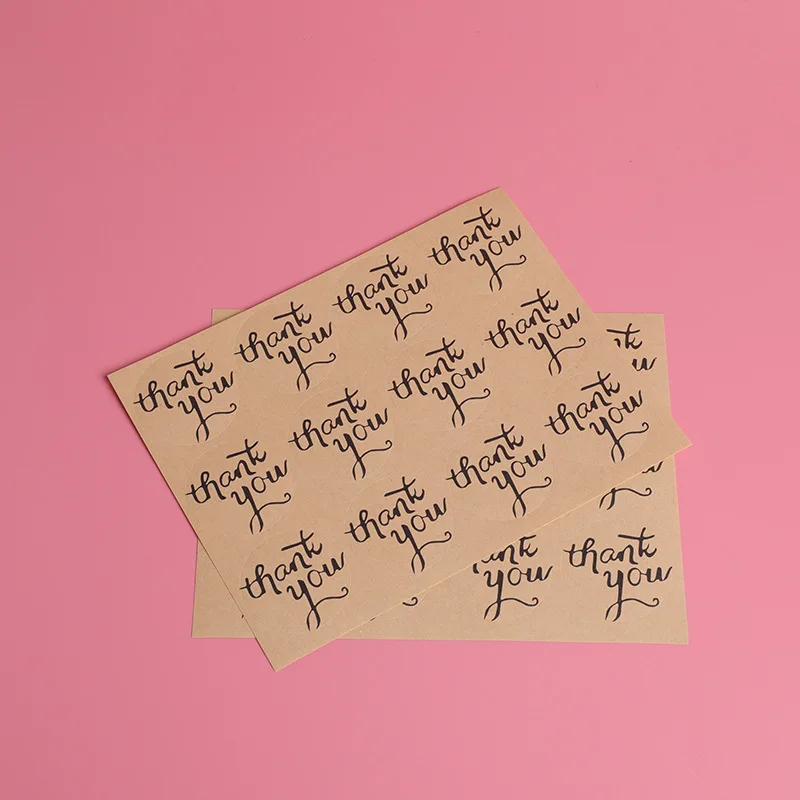 thank
you
thank
you
thank
you
thank
you
thank
you
thank
you
thank
you
thank
you
thank
you
thank
you
thank
you
thank
you
you
thank
you